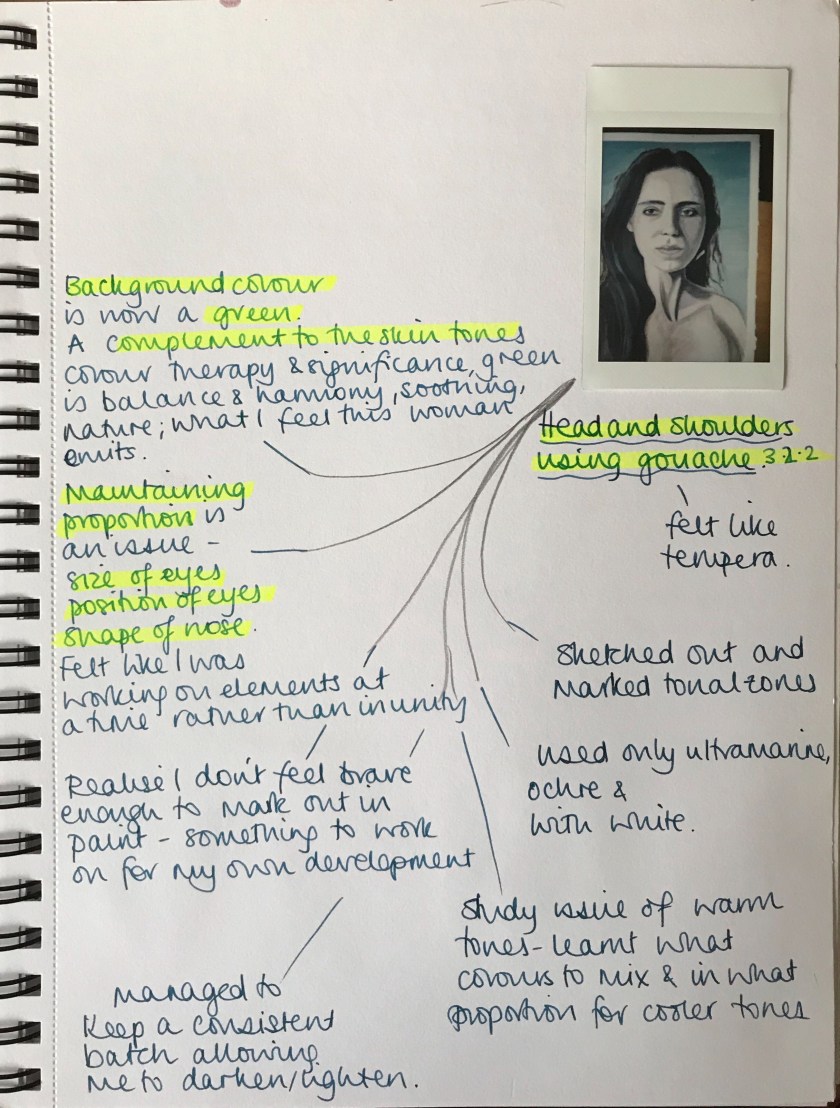 Background colour
is now a green.
A complement to the skin tones
colour therapy & significance, green
is balance & harmony, soothing,
nature; what I feel this woman
emits.
Head and shoulders
using gouache. 3.2.2
felt like
tempera.
Maintaining
proportion is
an issue -
size of eyes
position of eyes
shape of nose.
Felt like I was
working on elements at
a time rather than in unity
Sketched out and
Marked tonal zones
used only ultramarine,
ochre &
with white.
Realise I don't feel brave
enough to mark out in
paint - something to work
on for my own development
Study issue of warm
tones - learnt what
colours to mix & in what
proportion for cooler tones
managed to
keep a consistent
batch allowing
me to darken/lighten.